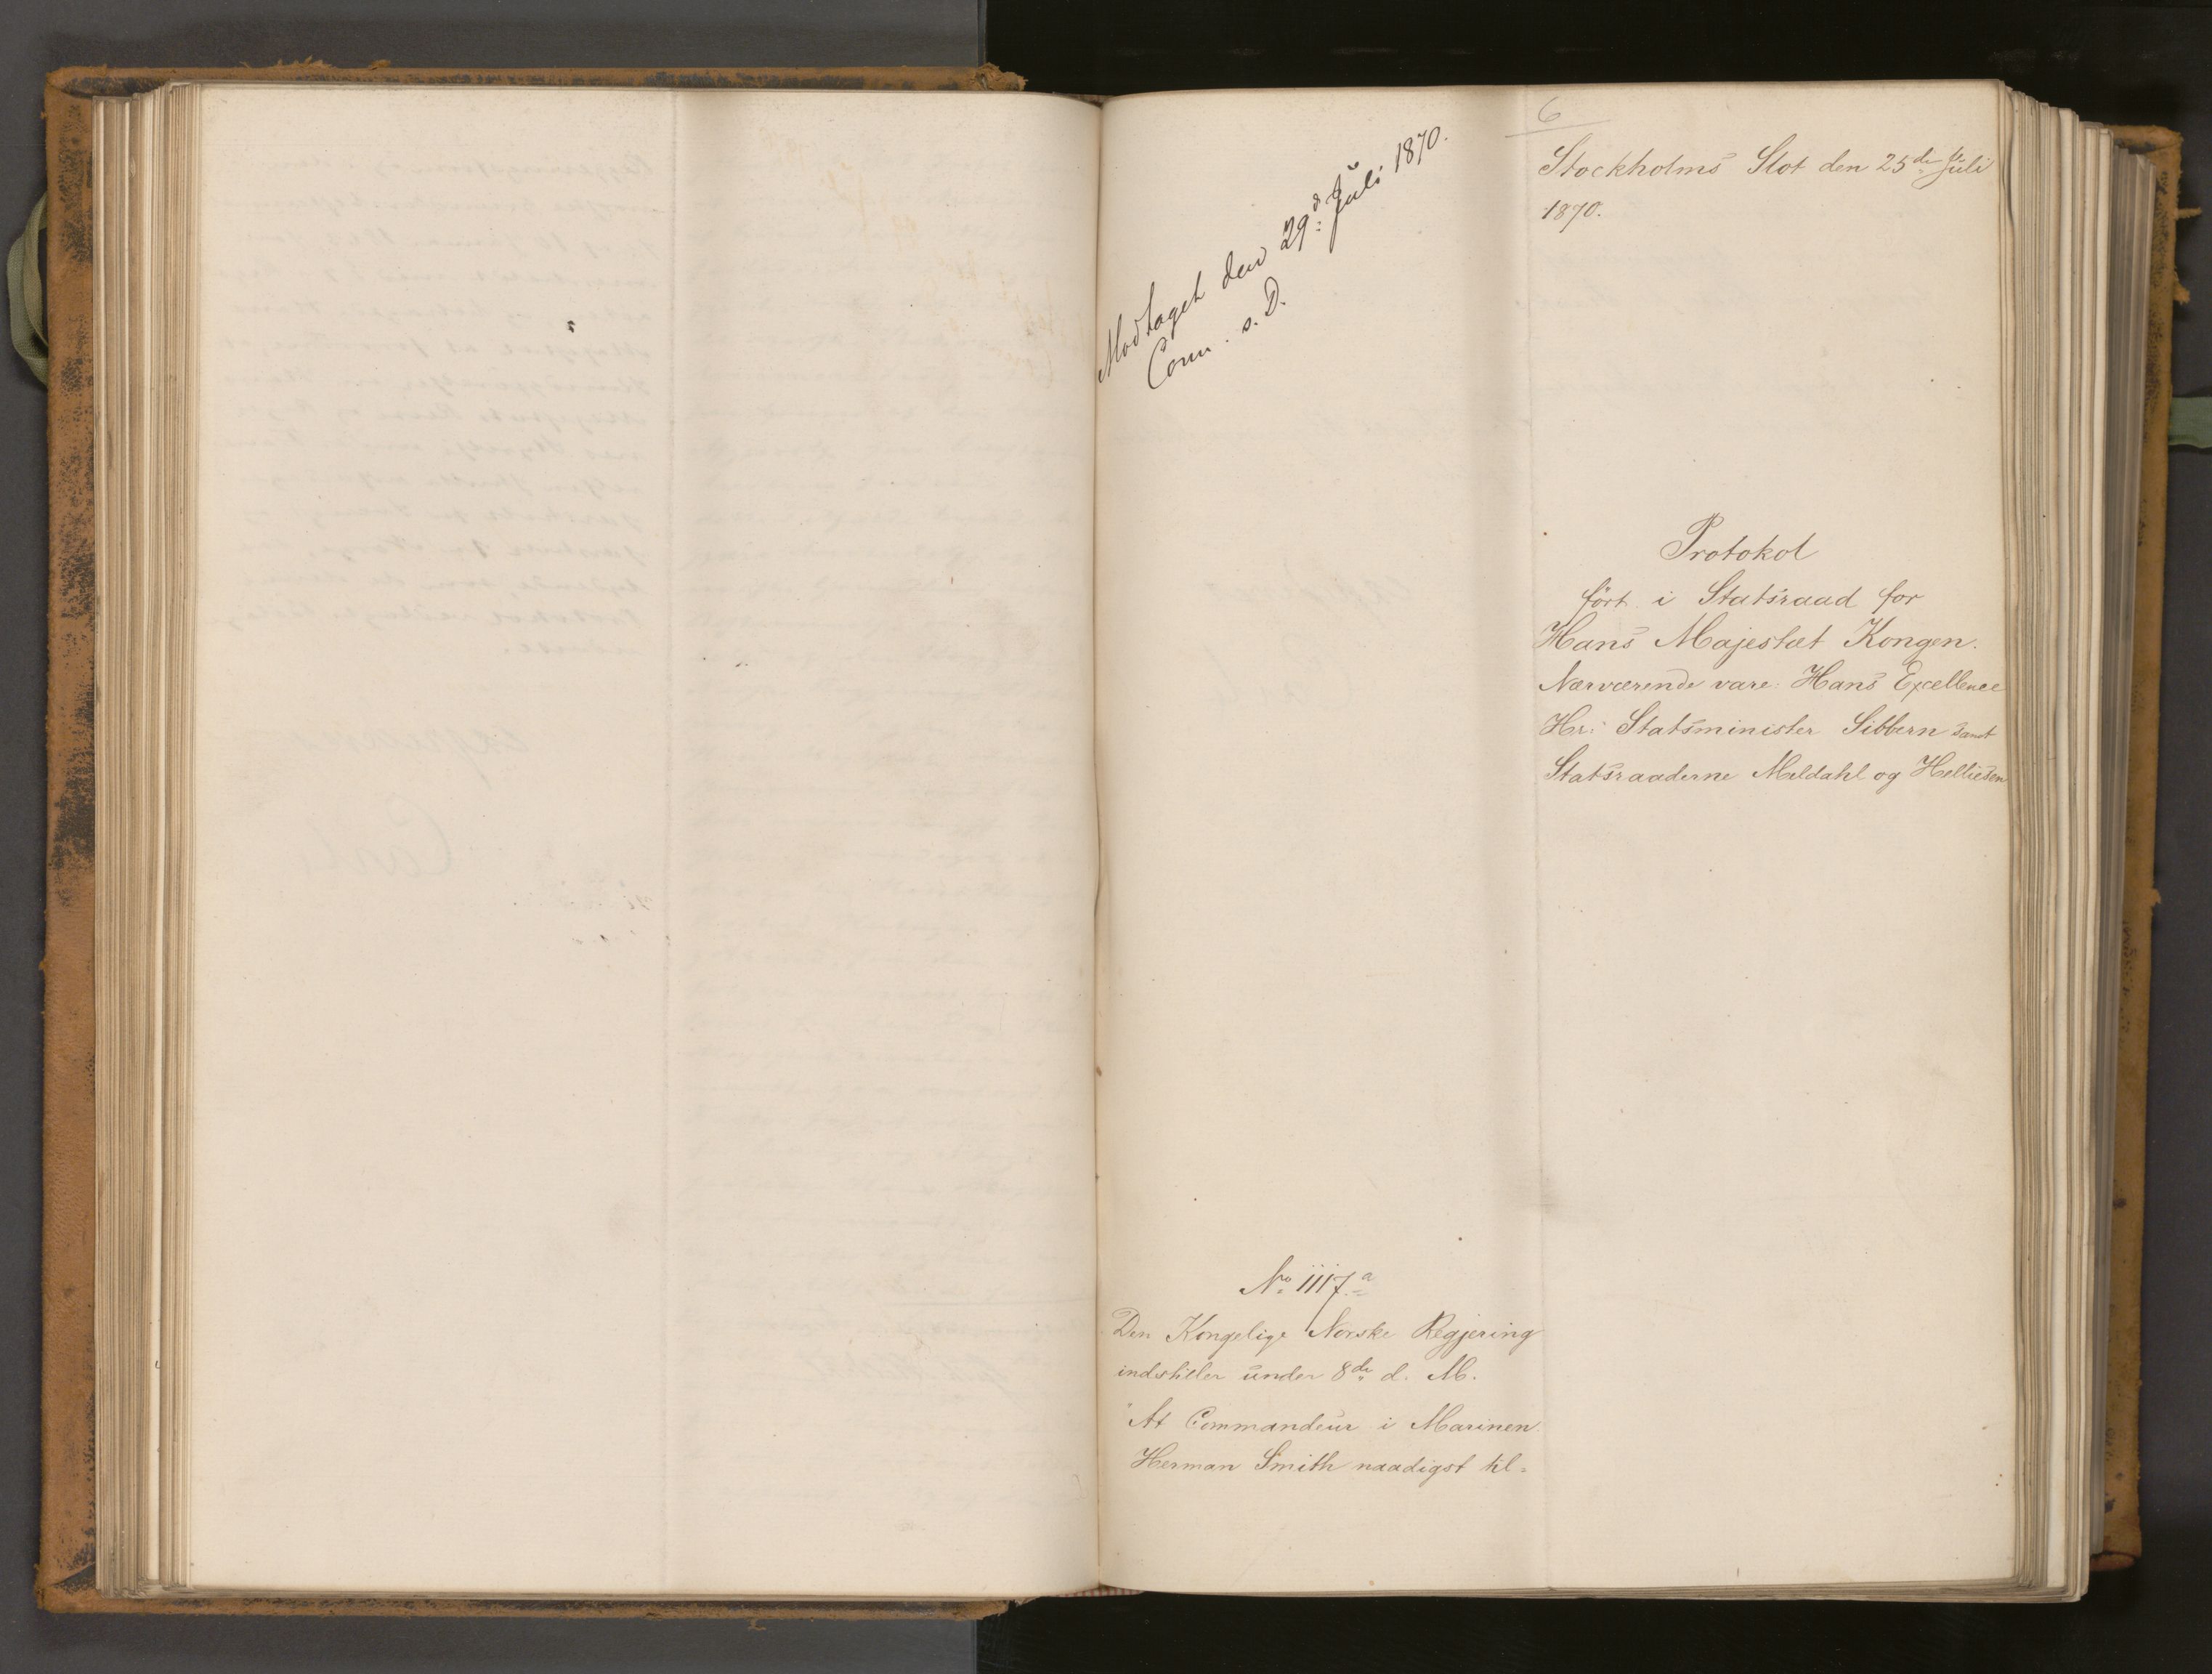 6
Modtaget den 29d: Juli 1870.
Comm. s. D.
Stockholms Slot den 25de Juli
1870.
Protokol
ført i Statsraad for
Hans Majestæt Kongen.
Nærværende vare: Hans Excellence
Hr: Statsminister Sibbern samt
Statsraaderne Meldahl og Helliesen
No 1117.a
Den Kongelige Norske Regjering
indstiller under 8de d. M.
"At Commandeur i Marinen
Herman Smith naadigst til=